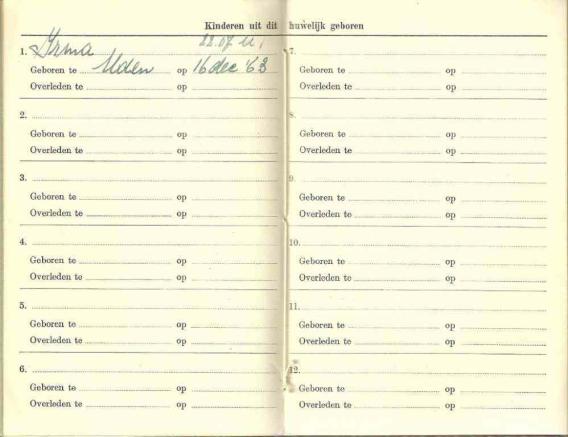 Kinderen uit dit huwelijk geboren
22.07 u,
1. Irma
Geboren te Uden op 16 dec '63
Overleden te op
2.
Geboren te op
Overleden te op
3.
Geboren te op
Overleden te op
4.
Geboren te op
Overleden te op
5.
Geboren te op
Overleden te op
6.
Geboren te op
Overleden te op
7.
Geboren te op
Overleden te op
8.
Geboren te op
Overleden te op
9.
Geboren te op
Overleden te op
10.
Geboren te op
Overleden te op
11.
Geboren te op
Overleden te op
12.
Geboren te op
Overleden te op